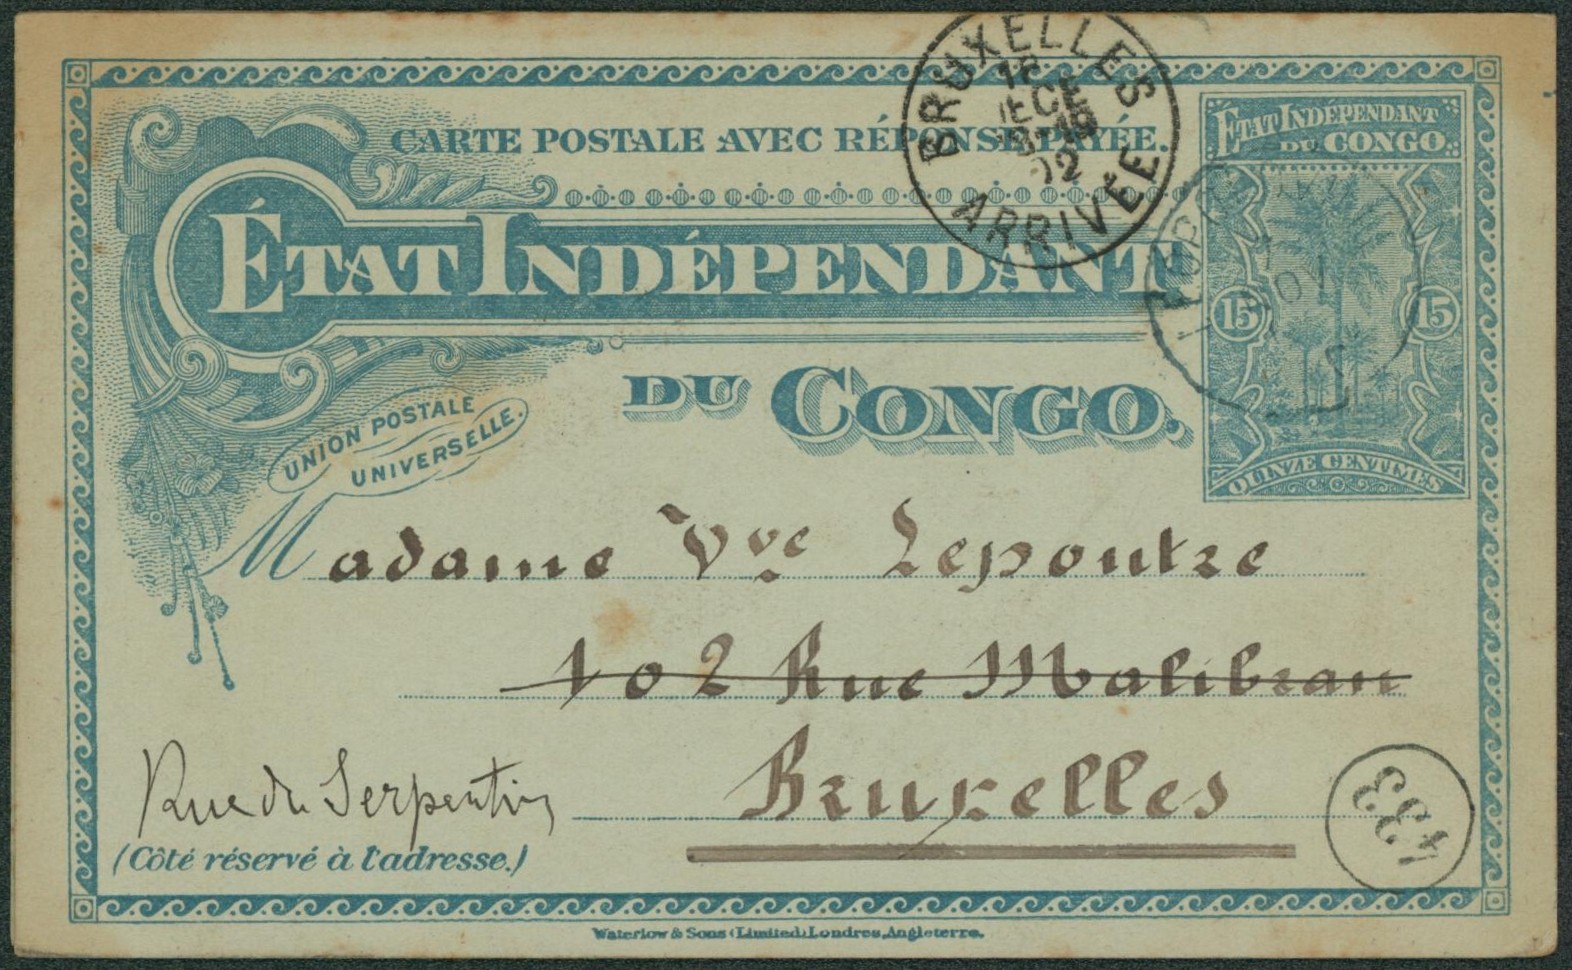 CARTE POSTALE AVEC RÉPONSE PAYÉE.
ÉTAT INDÉPENDANT
DU CONGO.
UNION POSTALE
UNIVERSELLE.
BRUXELLES
18
DECE
18-19
02
ARRIVÉE
ÉTAT INDÉPENDANT
DU CONGO
15 15
QUINZE CENTIMES
Madame Vve Lepoutre
102 Rue Malibran
Bruxelles
Rue du Serpentin
(Côté réservé à l'adresse.)
433
Waterlow & Sons (Limited) Londres, Angleterre.